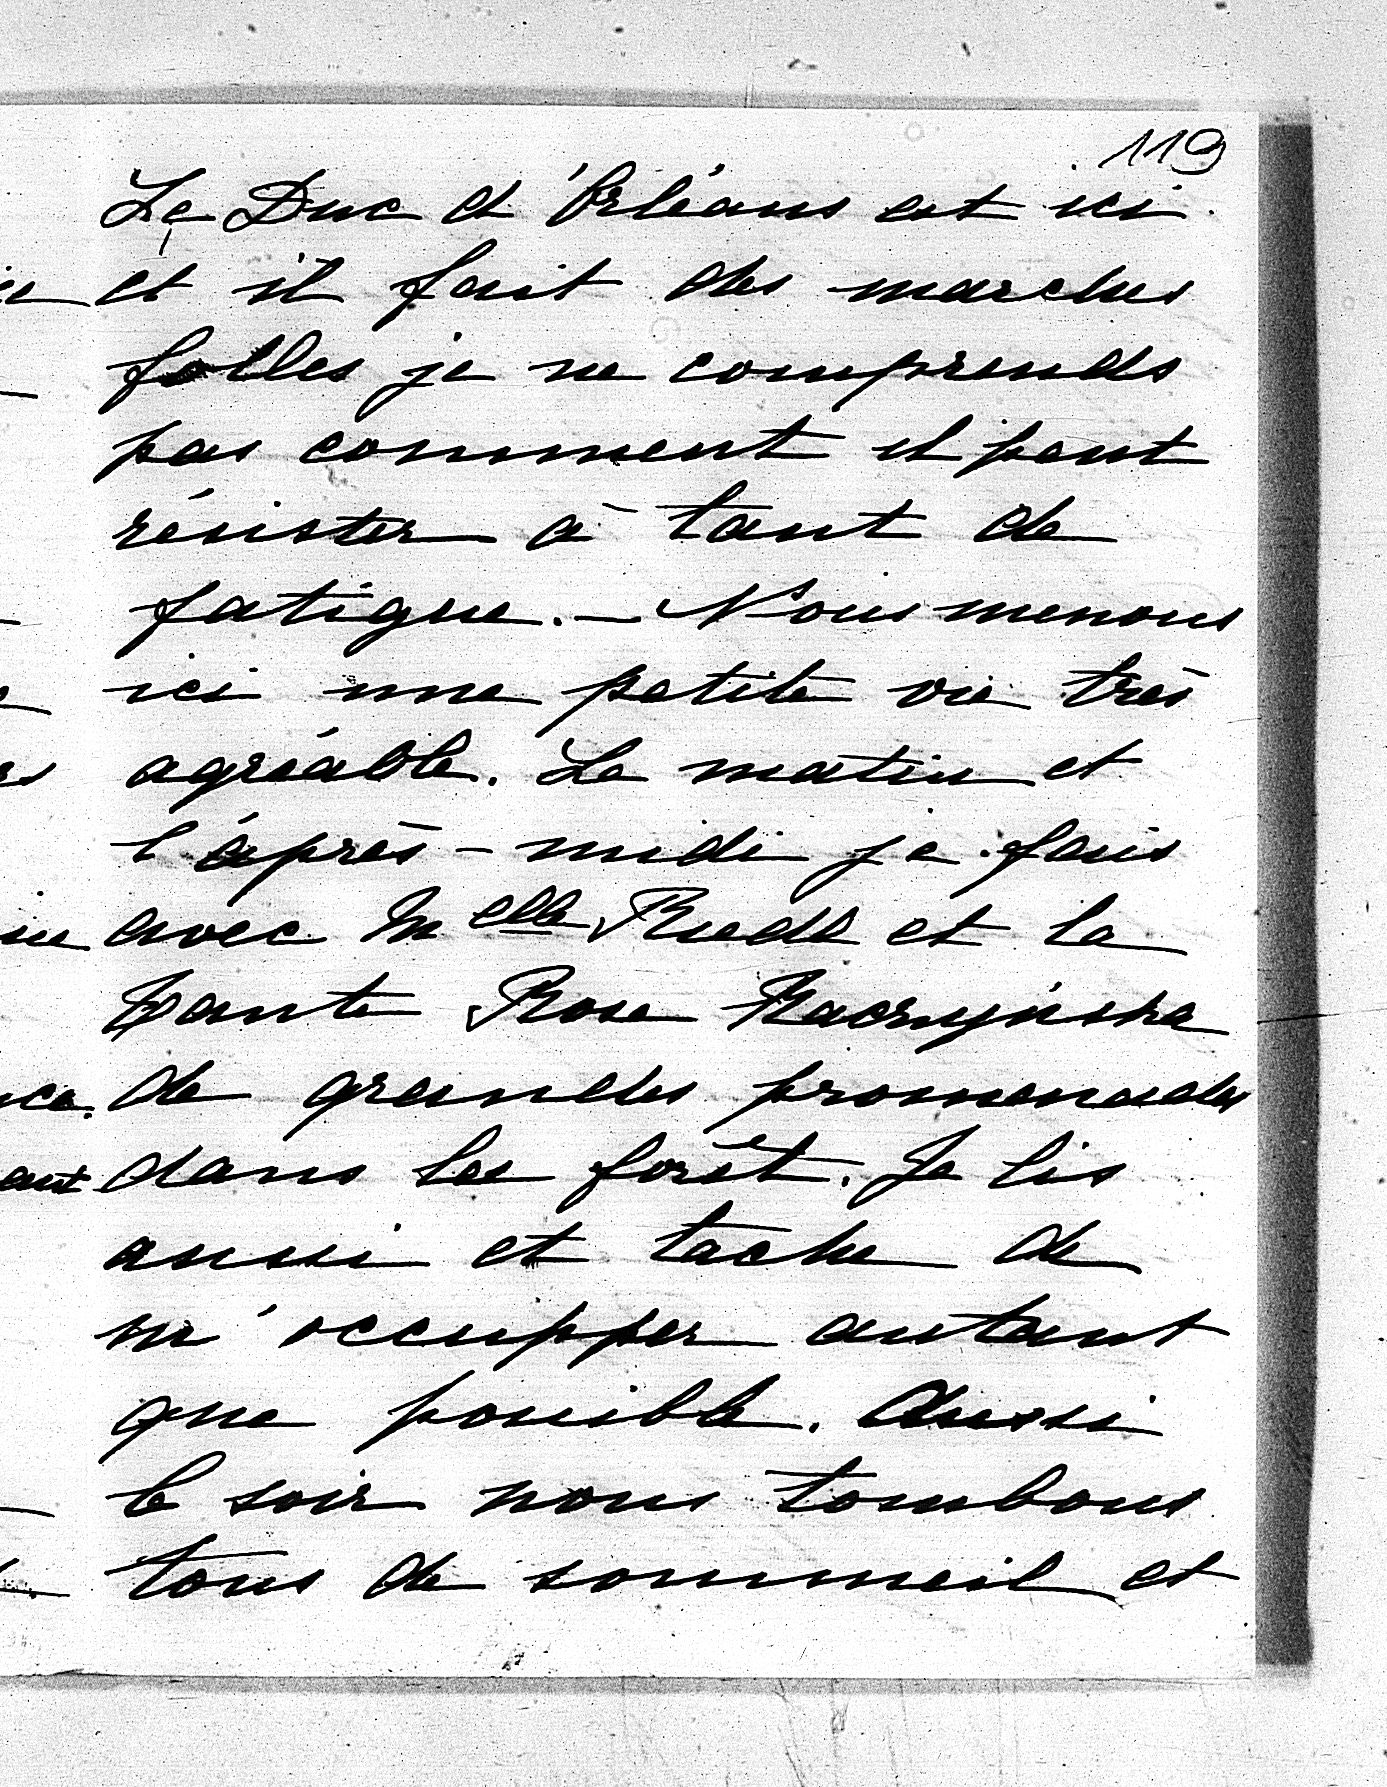 119
Le Duc d'Orléans est ici
et il fait des marches
folles je ne comprends
pas comment il peut
résister a tant de
fatigue. — Nous menons
ici une petite vie très
agréable. Le matin et
l'après-midi je fais
avec Melle Ruedl et la
tante Rose Raczyńska
de grandes promenades
dans les forêt. Je lis
aussi et tache de
m'occupper autant
que possible. Aussi
le soir nous tombons
tous de sommeil et